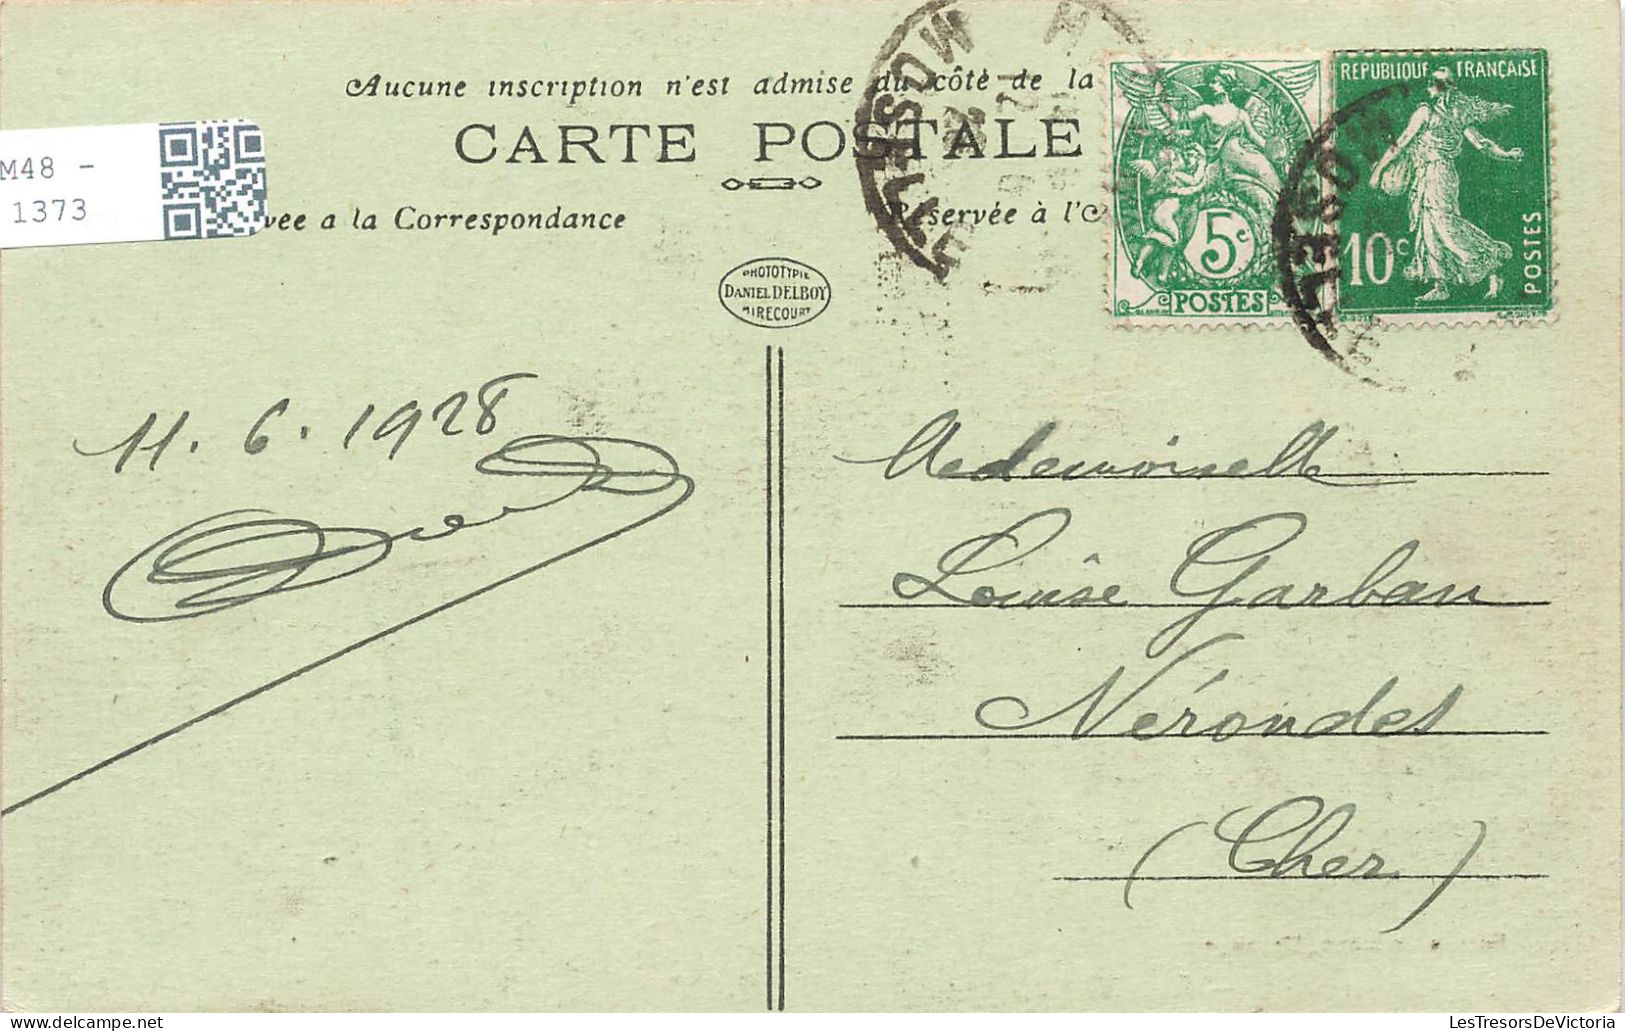 Aucune inscription n'est admise du côté de la
CARTE POSTALE
M48 -
1373
vee a la Correspondance
Réservée à l'A
PHOTOTYPIE
DANIEL DELBOY
MIRECOURT
5c
POSTES
RÉPUBLIQUE FRANÇAISE
10c
POSTES
MOSELLE
MOSELLE
11. 6. 1928
Mademoiselle
Louise Garban
Nérondes
(Cher)
LesTresorsDeVictoria